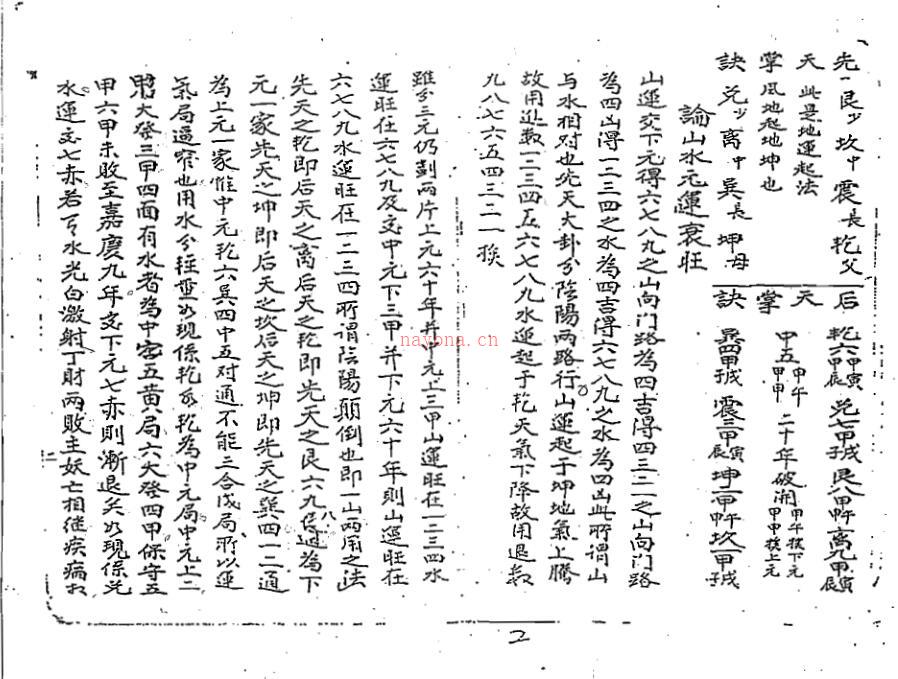 先 一艮少 坎中 震長 乾父
天 此是地運起法
掌 風地起地坤也
訣 兑少 离中 巽長 坤母
后 乾六甲寅辰 兑七甲子戌 艮八甲午申 离九甲寅辰
天 中五甲午甲申 二十年破澗甲午核下元甲申核上元
掌
訣 巽四甲子戌 震三甲寅辰 坤二甲申午 坎一甲子戌
論山水元運衰旺
山運交下元得六七八九之山向门路為四吉得四三二一之山向门路
為四凶得一二三四之水為四吉得六七八九之水為四凶此所謂山
与水相对也先天大卦分陰陽两路行山運起于坤地氣上騰
故用進数一二三四五六七八九水運起于乾天氣下降故用退数
九八七六五四三二一矣
雖分三元仍劃两片上元六十年并中元上三甲山運旺在一二三四水
運旺在六七八九及交中元下三甲并下元六十年則山運旺在
六七八九水運旺在一二三四所谓陰陽顛倒也即一山两用之法
先天之乾即后天之离后天之乾即先天之艮六九八運通為下
元一家先天之坤即后天之坎后天之坤即先天之巽四一二通
為上元一家惟中元乾六巽四中五对通不能三合成局所以運
氣局逼窄也用水分轻重如現係乾方乾為中元局中元上二
甲大發三甲四面有水者為中宫五黄局六大發四甲保守五
甲六甲未敗至嘉慶九年交下元七赤則漸退矣如現係兑
水運交七赤若有水光白激射丁財两敗主妖亡相继疾病
2
nayona.cn